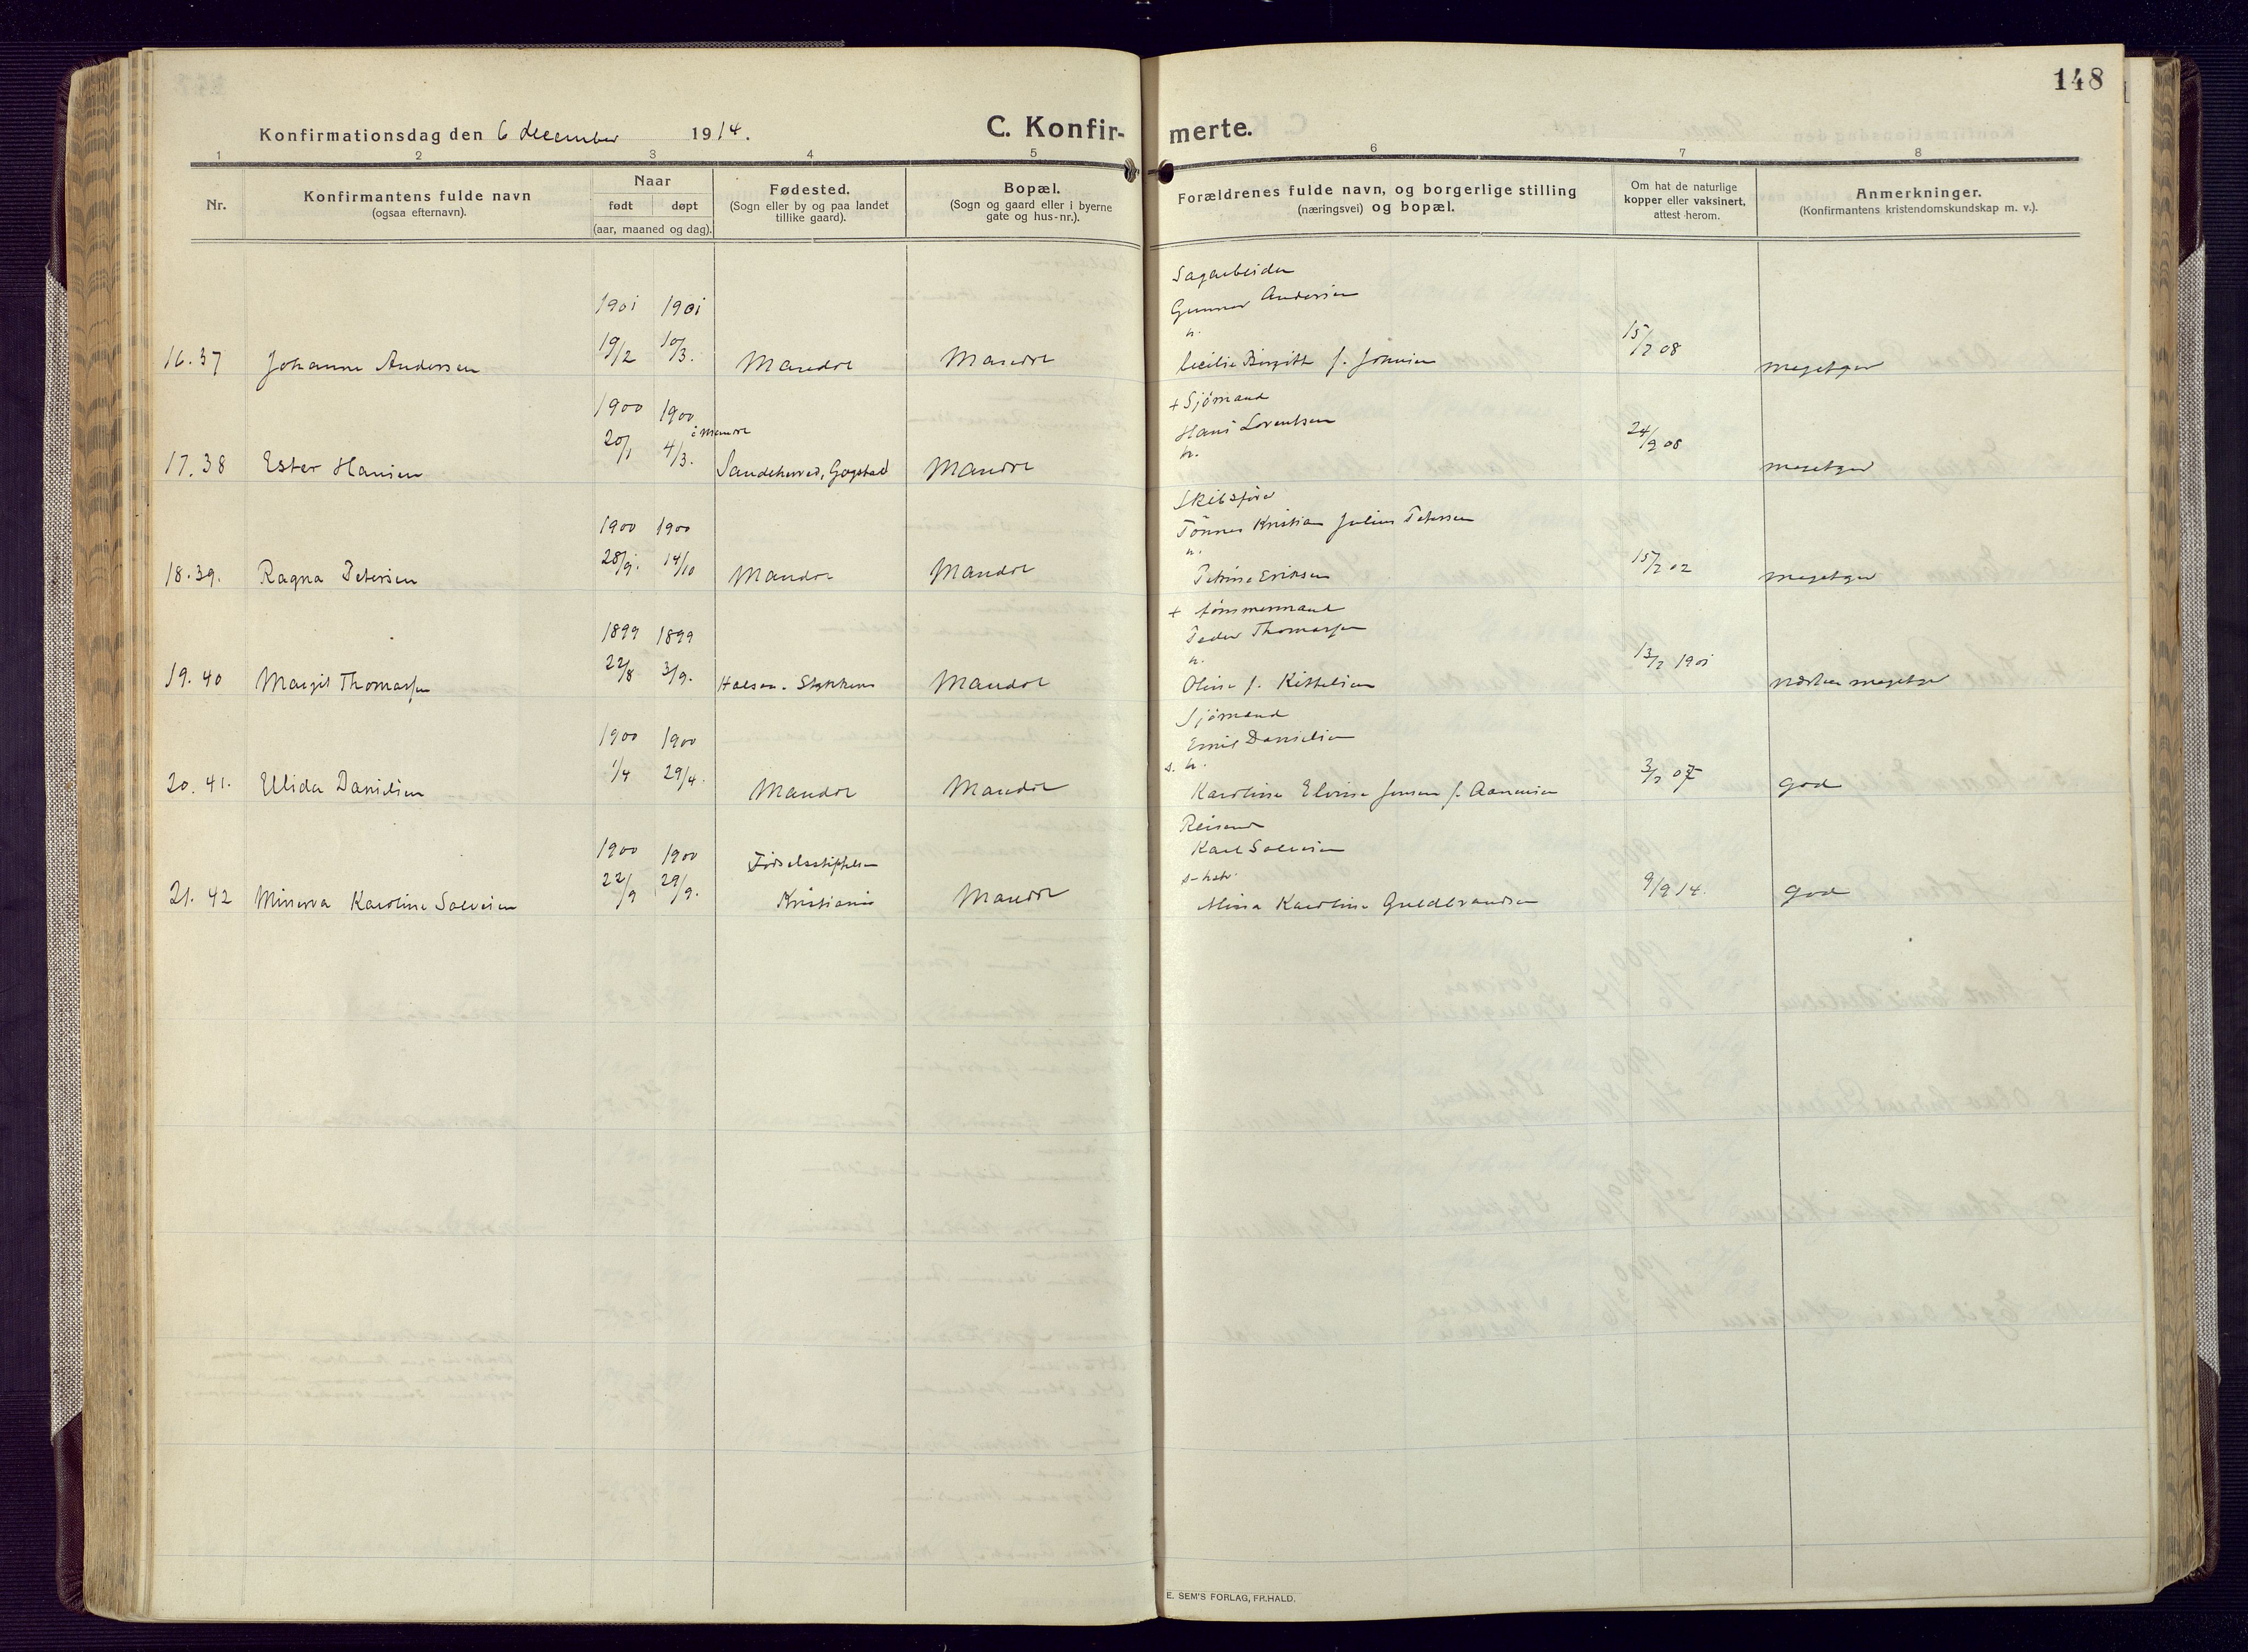 148
Konfirmationsdag den 6 december 1914.
C. Konfir- merte.
1 2 3 4 5 6 7 8
Nr.
Konfirmantens fulde navn
(ogsaa efternavn).
Naar
født døpt
(aar, maaned og dag).
Fødested.
(Sogn eller by og paa landet
tillike gaard).
Bopæl.
(Sogn og gaard eller i byerne
gate og hus-nr.).
Forældrenes fulde navn, og borgerlige stilling
(næringsvei) og bopæl.
Om hat de naturlige
kopper eller vaksinert,
attest herom.
Anmerkninger.
(Konfirmantens kristendomskundskap m. v.).
Sagarbeider
1901 1901 Gunnar Andersen
16.37 Johanne Andersen 19/2 10/3. Mandal Mandal Cecilie Birgitte f. 15/2 08 megetgod
+ Sjömand
1900 1900 Hans Lorentsen
17.38 Ester Hansen 20/1 4/3. Sandeherred, Gogstad Mandal 24/9 08 megetgod
Skibsfører
1900 1900 Tönnes Kristian Julius Petersen
18.39. Ragna Petersen 28/9. 14/10 Mandal Mandal Petrine Eriksen 15/2 02 megetgod
+ tömmermand
1899 1899 Peder Thomassen
19.40 Margit Thomassen 22/8 3/9. Halsaa. Stykkene Mandal Oline f. Kittelsen 13/2 1901 næsten megetgod
Sjömand
1900 1900 Emil Danielsen
20.41. Ellida Danielsen 1/4 29/4. Mandal Mandal Karoline Elvine Jensen f. Aanensen 3/2 07 god
Reisende
1900 1900 Fødselsstiftelsen Karl Salvesen
21.42 Minerva Karoline Salvesen 22/9 29/9. Kristiania Mandal Karoline Guldbrandsen 9/9 14. god
E. SEM'S FORLAG, FR.HALD.